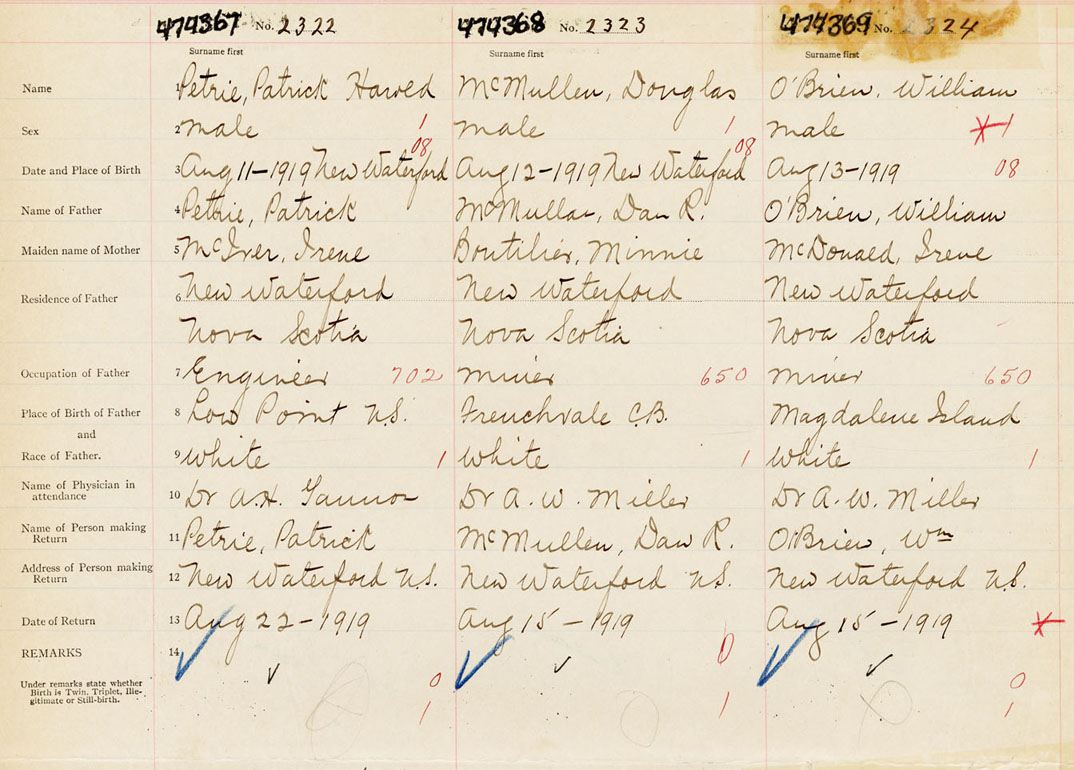 474367 No. 2322 474368 No. 2323 474369 No. 2324
Surname first Surname first Surname first
Name 1 Petrie, Patrick Harold McMullen, Douglas O'Brien, William
Sex 2 male 1 male 1 male 1
08 08
Date and Place of Birth 3 Aug 11-1919 New Waterford Aug 12-1919 New Waterford Aug 13-1919 08
Name of Father 4 Petrie, Patrick McMullan, Dan R. O'Brien, William
Maiden name of Mother 5 McIver, Irene Boutilier, Minnie McDonald, Irene
Residence of Father 6 New Waterford New Waterford New Waterford
Nova Scotia Nova Scotia Nova Scotia
Occupation of Father 7 Engineer 702 miner 650 miner 650
Place of Birth of Father 8 Low Point N.S. Frenchvale C.B. Magdalene Island
and
Race of Father. 9 White 1 White 1 White 1
Name of Physician in
attendance 10 Dr A.H. Dr A. W. Miller Dr A. W. Miller
Name of Person making
Return 11 Petrie, Patrick McMullen, Dan R. O'Brien, Wm
Address of Person making
Return 12 New Waterford N.S. New Waterford N.S. New Waterford N.S.
Date of Return 13 Aug 22-1919 Aug 15-1919 Aug 15-1919
REMARKS 14 0
Under remarks state whether
Birth is Twin, Triplet, Ille-
gitimate or Still-birth.
0 0
1 1 1